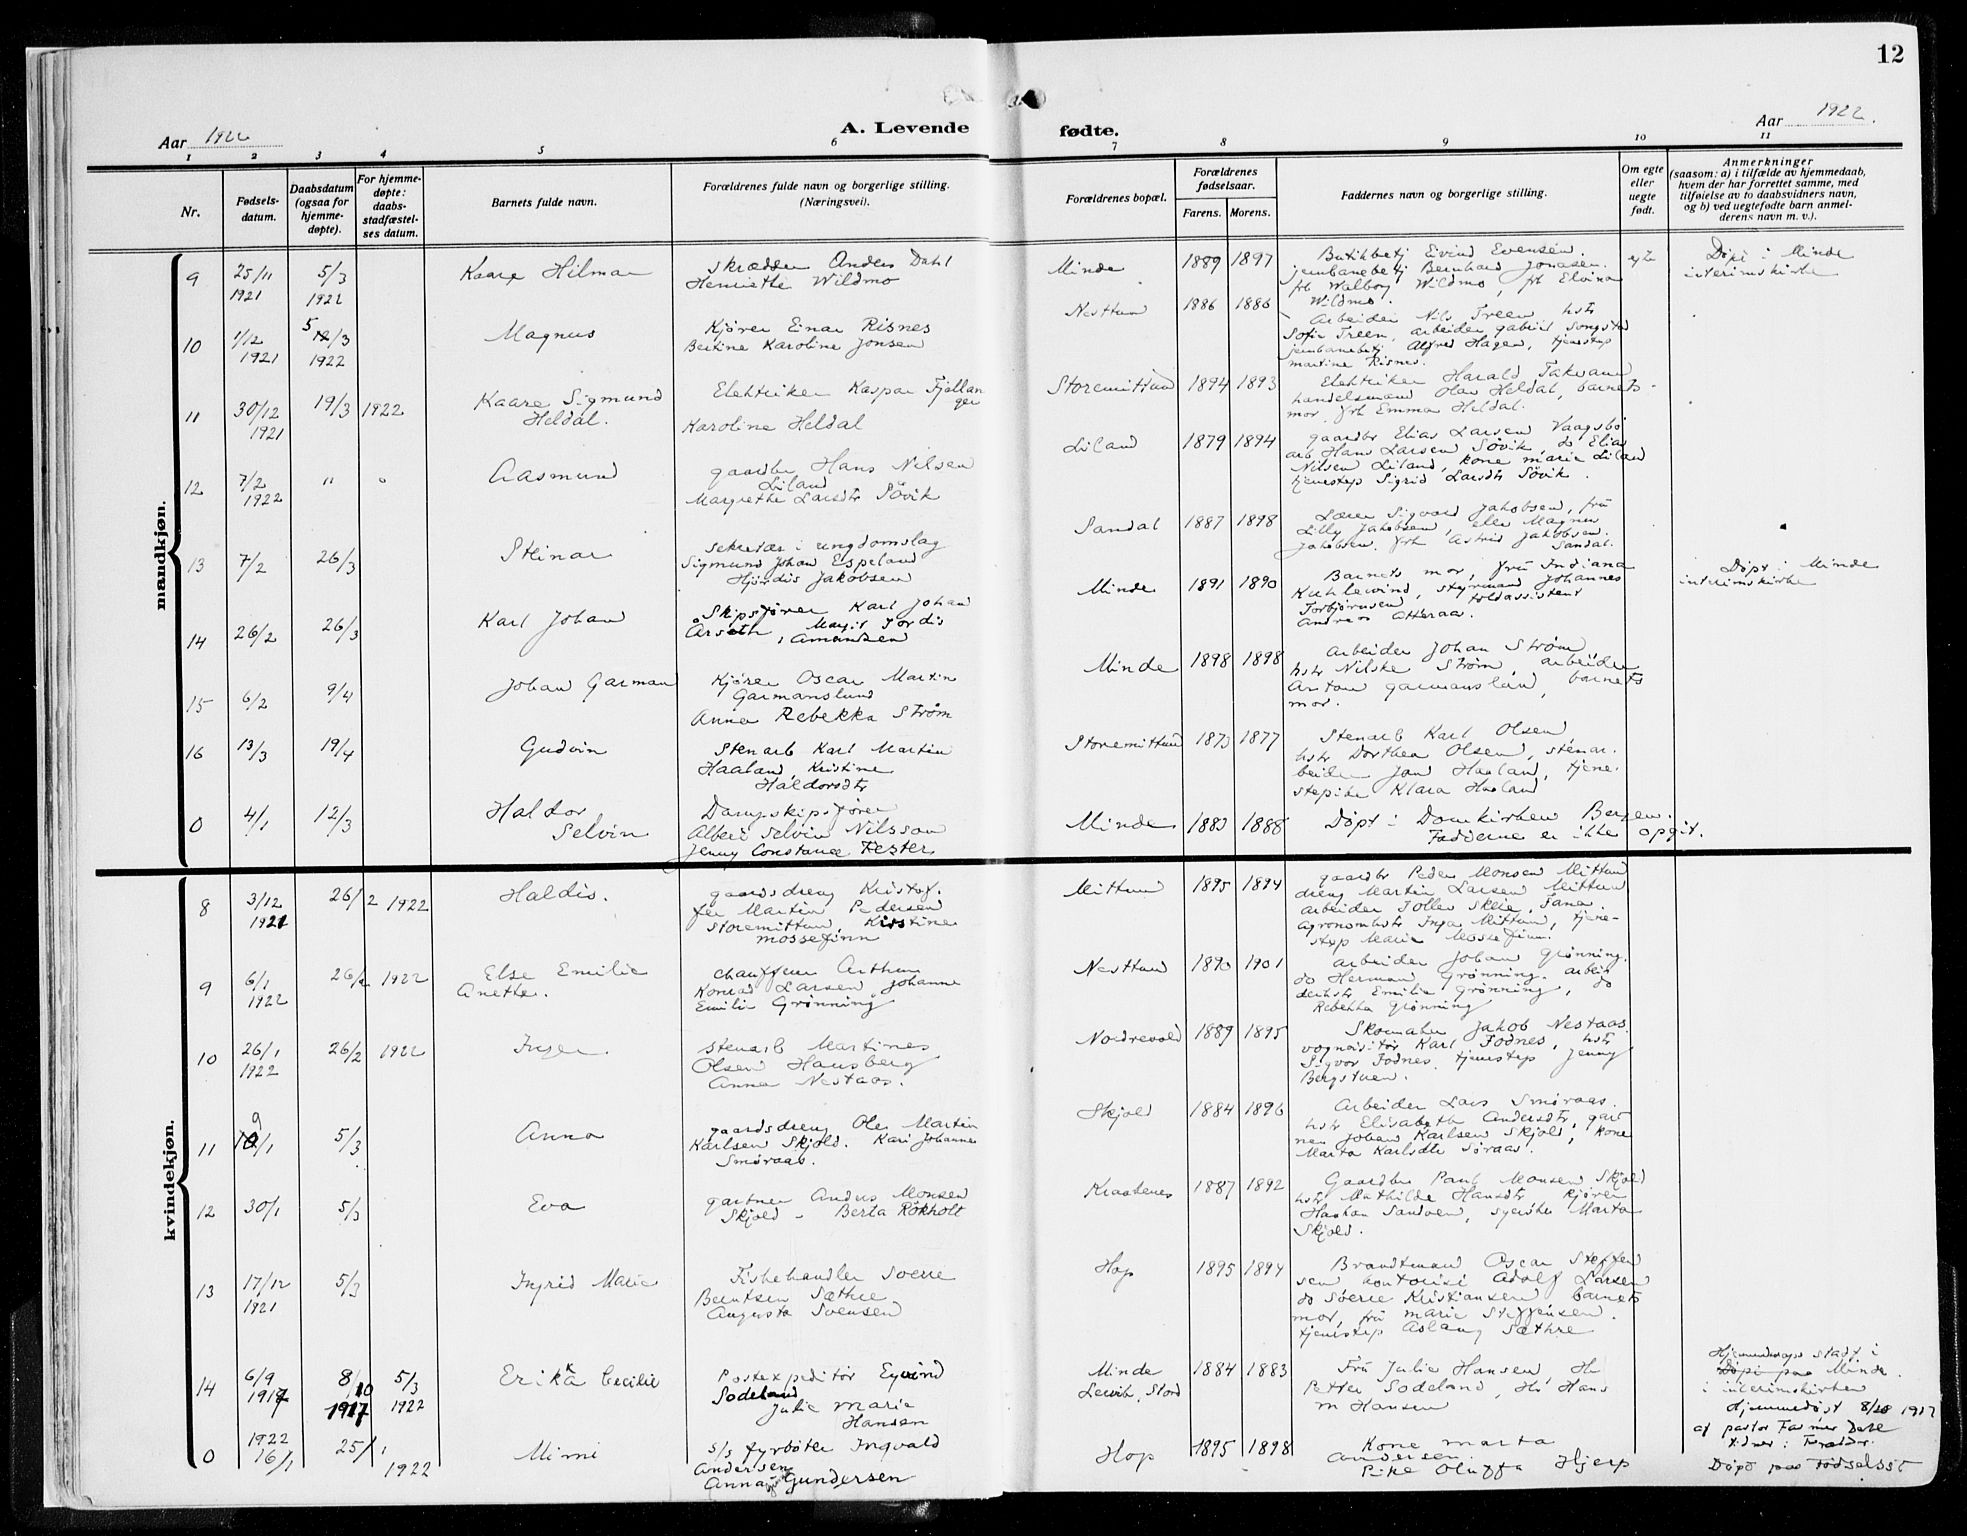 12
Aar 1922
A. Levende fødte.
Aar 1922.
1 2 3 4 5 6 7 8 9 10 11
Nr.
Fødsels-
datum.
Daabsdatum
(ogsaa for
hjemme-
døpte).
For hjemme-
døpte:
daabs-
stadfæstel-
ses datum.
Barnets fulde navn.
Forældrenes fulde navn og borgerlige stilling.
(Næringsvei).
Forældrenes bopæl.
Forældrenes
fødselsaar.
Farens. Morens.
Faddernes navn og borgerlige stilling.
Om egte
eller
uegte
født.
Anmerkninger
(saasom: a) i tilfælde av hjemmedaab,
hvem der har forrettet samme, med
tilføielse av to daabsvidners navn,
og b) ved uegtefødte barn anmel-
derens navn m. v.).
mandkjøn.
9 25/11 5/3 Kaare Hilmar Skrædder Anders Dahl Minde 1889 1897 Butikbetj Eivind Evensen egte Døpt i Minde
1921 1922 Henriette Wildmo jernbanebetj Bernhard Jonasen interimskirke
frk Walborg Wildmo, frk Elvina
Wildmo.
10 1/12 5/3 Magnus Kjører Einar Risnes Nesttun 1886 1886 Arbeider Nils Treen hstr
1921 1922 Bertine Karoline Jonsen Sofie Treen, arbeider Gabriel Songstad
jernbanebetj Alfred Hagen, tjenestep
Martine Risnes.
11 30/12 19/3 1922 Kaare Sigmund Elektriker Kaspar Fjellan Storemittun 1894 1893 Elektriker Harald Takvam
1921 Heldal. ger handelsmand Olav Heldal, barnets
Karoline Heldal mor, frk Emma Heldal.
12 7/2 " " Aasmund gaardbr Hans Nilsen Liland 1879 1894 gaardbr Elias Larsen Vaagsbø
1922 Liland arb Hans Larsen Søvik, do Elias
Margrethe Larsdtr Søvik Nilsen Liland, kone Marie Liland
tjenestep Sigrid Larsdtr Søvik.
13 7/2 26/3 Steinar sekretær i ungdomslag Sandal 1887 1898 Lærer Sigvard Jakobsen, fru
Sigmund Johan Espeland Lilly Jakobsen, elev Magnus
Hjørdis Jakobsen Jakobsen, frk Astrid Jakobsen
Sandal.
14 26/2 26/3 Karl Johan Skipsfører Karl Johan Minde 1891 1890 Barnets mor, fru Indiana Døpt i Minde
Arseth, Magit Tordis Kuhlewind, styrmand Johannes interimskirke
Amundsen Torbjørnsen, toldassistent
Andreas Otteraa.
15 6/2 9/4 Johan Garman Kjører Oscar Martin Minde 1898 1898 Arbeider Johan Strøm,
Garmanslund hstr Nilske Strøm, arbeider
Anna Rebekka Strøm Anton Garmanslund, barnets
mor.
16 13/3 19/4 Gudvin Stenarb Karl Martin Storemittun 1873 1877 Stenarb Karl Olsen,
Haaland, Kristine hstr Dorthea Olsen, stenar.
Haldorsdtr beider Jon Haaland, tjene.
stepike Klara Haaland
0 4/1 12/3 Haldor Dampskipsfører Minde 1883 1888 Døpt i Domkirken Bergen.
Selvin Albert Selvin Nilsson Fadderne er ikke opgit.
Jenny Constance Fester
kvindekjøn.
8 3/12 26/2 1922 Haldis. gaardsdreng Kristof. Mittun 1895 1894 gaardbr Peder Monsen Mittun
1921 fer Martin Pedersen dreng Martin Larsen Mittun
Storemittun, Kristine arbeider Tollev Skeie, Fana.
Mossefinn Agronomhstr Inga Mittun, tjene-
step Marie Mosefinn.
9 6/1 26/2 1922 Else Emilie chauffeur Arthur Nesttun 1890 1901 Arbeider Johan Grønning.
1922 Anette. Konrad Larsen, Johanne do Herman Grønning, arbeid
Emilie Grønning derhstr Emilie Grønning, do
Rebekka Grønning
10 26/1 26/2 1922 Inger. Stenarb Martines Nordrevold 1889 1895 Skomaker Jakob Nestaas.
1922 Olsen Hausberg vognvisitør Karl Fodnes, hstr
Anna Nestaas. Sigvor Fodnes, tjenestep Jenny
Bergstuen.
11 9/1 5/3 Anna gaardsdreng Ole Martin Skjold 1884 1896 Arbeider Lars Smøraas.
Karlsen Skjold. Kari Johannes hstr Elisabeth Andersdtr, gart
Smøraas. ner Johan Karlsen Skjold, kone
Marta Karlsdtr Søraas.
12 30/1 5/3 Eva gartner Anders Monsen Kraakenes 1887 1892 Gaardbr Paul Monsen Skjold
Skjold - Berta Røkholt hstr Mathilde Hansdtr kjører
Haakon Sandven, syerske Marta
Skjold.
13 17/12 5/3 Ingrid Marie Fiskehandler Sverre Hop 1895 1894 Brandtmand Oscar Steffen
1921 Berntsen Sæthre sen kontorist Adolf Larsen
Augusta Svensen do Sverre Kristiansen barnets
mor, fru Marie Steffensen.
tjenestep Aslaug Sæthre
14 6/9 8/10 5/3 Erika Cecilie Postexpeditør Eyvind Minde 1884 1883 Fru Julie Hansen, Hr Hjemmedaaps stadf i
1917 1917 1922 Sodeland Leirv. Stord Petter Sodeland, Hr Hans Døpt paa Minde.
Julie Marie M Hansen i interimskirken
Hansen Hjemmedøpt 8/10 1917
af pastor
0 1922 25/1 Mimi s/s fyrbøter Ingvald Hop 1895 1898 Kone Marta
16/1 1922 Andersen Andersen.
Anna Gundersen Pike Oluffa Hjerp Døpt paa Fødselsst